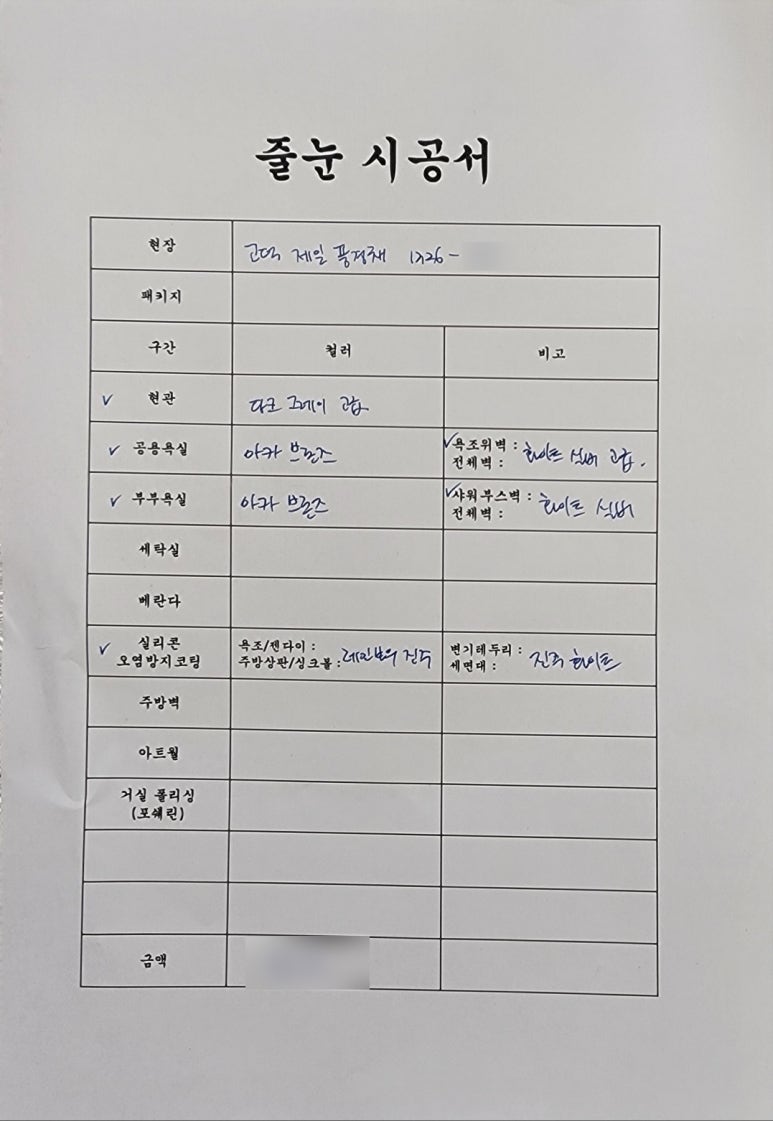 줄눈 시공서
현장 고덕 제일 풍경채 1726-
패키지
구간 컬러 비고
현관 다크 그레이 고급
공용욕실 아카 브론즈 욕조위벽 : 화이트 실버 고급.
전체벽 :
부부욕실 아카 브론즈 샤워부스벽 : 화이트 실버
전체벽 :
세탁실
베란다
실리콘 욕조/젠다이 : 변기테두리 :
오염방지코팅 주방상판/싱크볼 : 레인보우 진주 세면대 : 진주 화이트
주방벽
아트월
거실 폴리싱
(포쉐린)
금액